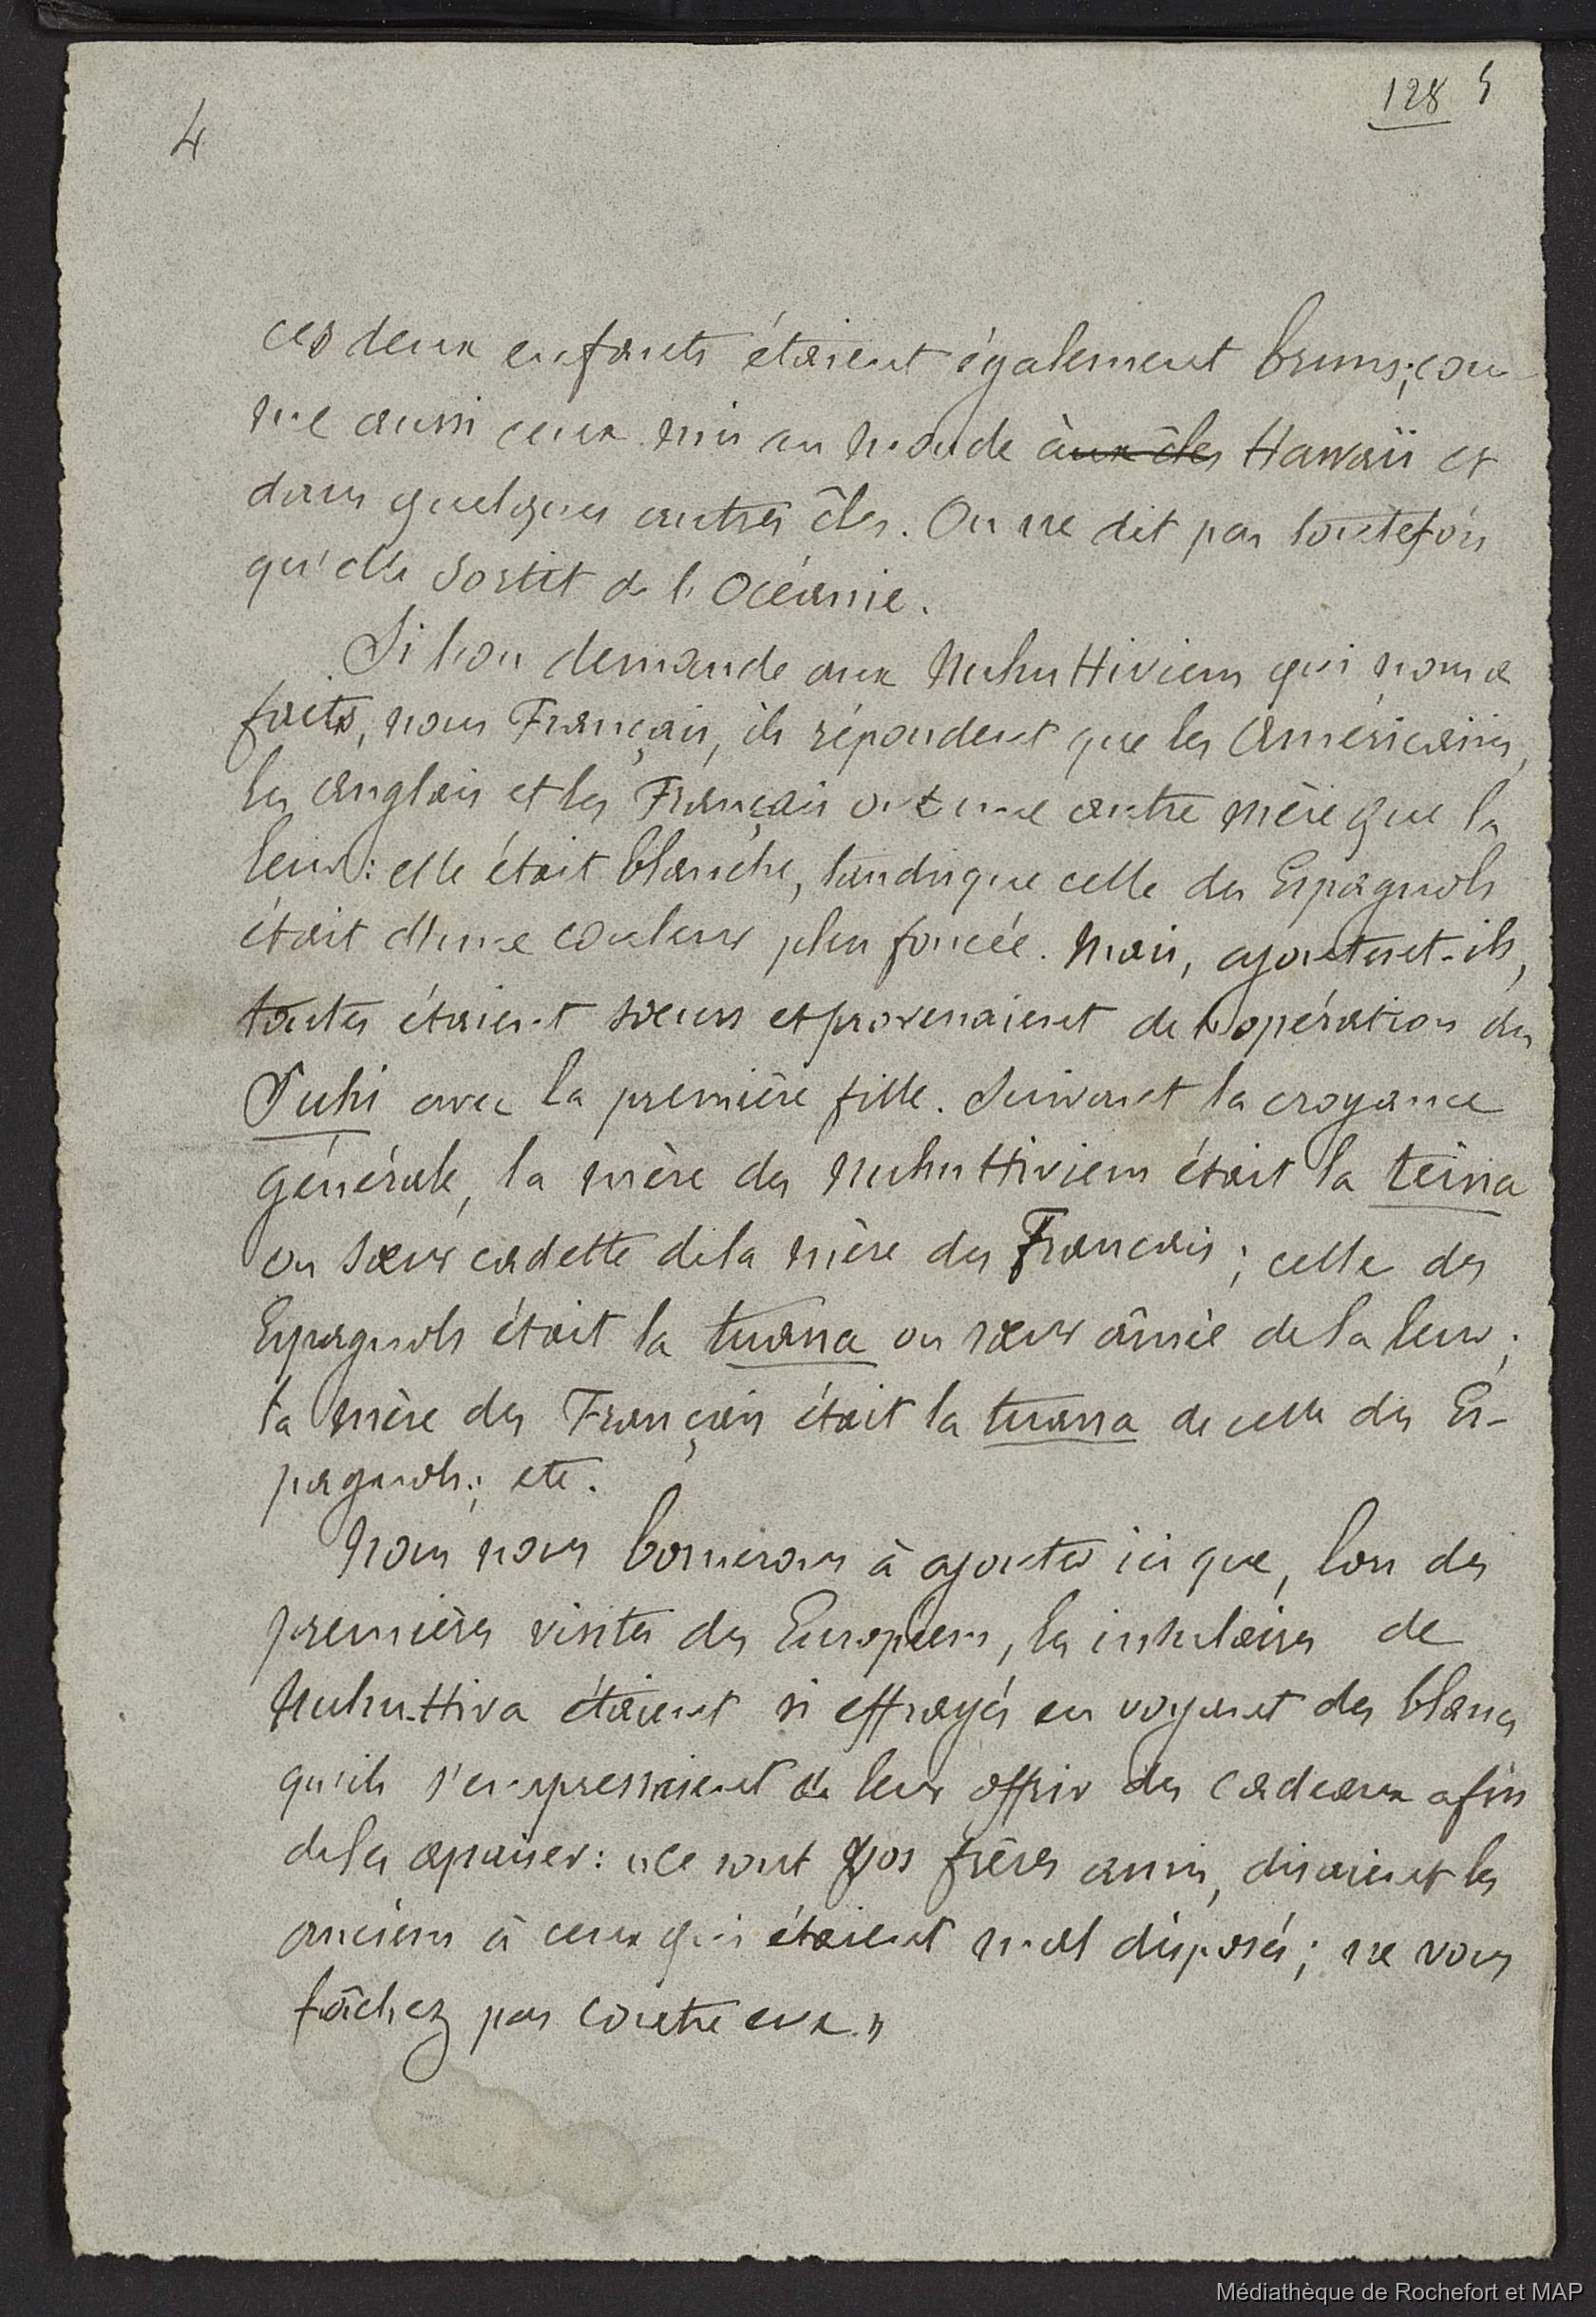 4
128 5
ces deux enfants étaient également bruns; com-
me aussi ceux mis au monde aux îles Hawaïi et
dans quelques autres îles. On ne dit pas toutefois
qu'elle sortit de l'Océanie.
Si l'on demande aux Nuhu Hiviens qui nous a
faits, nous Français, ils répondent que les Américains,
les Anglais et les Français ont une autre mère que la
leur: elle était blanche, tandis que celle des Espagnols
était d'une couleur plus foncée. Mais, ajoutent-ils,
toutes étaient sœurs et provenaient de l'opération du
Puhi avec la première fille. Suivant la croyance
générale, la mère des Nuhu Hiviens était la teina
ou sœur cadette de la mère des Français; celle des
Espagnols était la tuana ou sœur aînée de la leur;
la mère des Français était la tuana de celle des Es-
pagnols; etc.
Nous nous bornerons à ajouter ici que, lors des
premières visites des Européens, les insulaires de
Nuhu-Hiva étaient si effrayés en voyant des blancs
qu'ils s'empressaient de leur offrir des cadeaux afin
de les apaiser: "Ce sont vos frères amis, disaient les
anciens à ceux qui étaient mal disposés; ne vous
fâchez pas contre eux."
Médiathèque de Rochefort et MAP